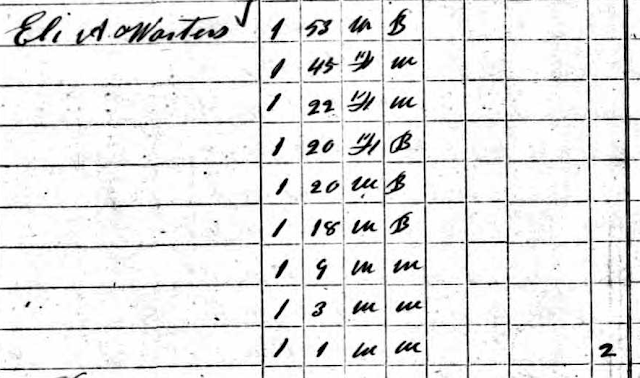 Eli A Waters 1 53 m B
1 45 F m
1 22 F m
1 20 F B
1 20 m B
1 18 m B
1 9 m m
1 3 m m
1 1 m m 2